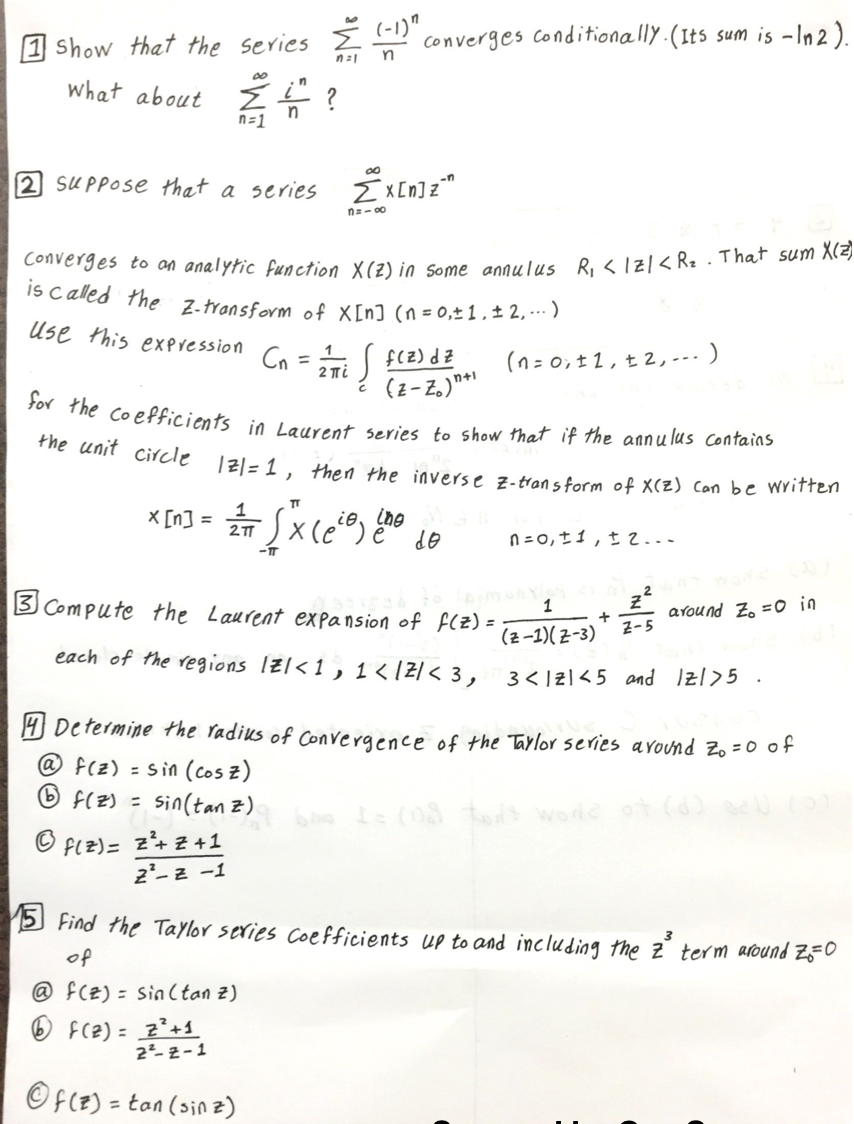 1 Show that the series $\sum_{n=1}^{\infty} \frac{(-1)^n}{n}$ converges conditionally. (Its sum is -ln2).
What about $\sum_{n=1}^{\infty} \frac{i^n}{n}$ ?
2 Suppose that a series $\sum_{n=-\infty}^{\infty} x[n] z^{-n}$
converges to an analytic function X(z) in some annulus $R_1 < |z| < R_2$. That sum X(z)
is called the Z-transform of X[n] (n = 0, ±1, ±2, ...)
Use this expression $C_n = \frac{1}{2\pi i} \int_c \frac{f(z) dz}{(z-z_0)^{n+1}}$ (n = 0, ±1, ±2, --- )
for the coefficients in Laurent series to show that if the annulus contains
the unit circle |z| = 1, then the inverse z-transform of X(z) can be written
$X[n] = \frac{1}{2\pi} \int_{-\pi}^{\pi} X(e^{i\theta}) e^{in\theta} d\theta$ n=0, ±1, ±2...
3 Compute the Laurent expansion of $f(z) = \frac{1}{(z-1)(z-3)} + \frac{z^2}{z-5}$ around $z_0 = 0$ in
each of the regions |z| < 1, 1 < |z| < 3, 3 < |z| < 5 and |z| > 5.
4 Determine the radius of convergence of the Taylor series around $z_0 = 0$ of
ⓐ f(z) = sin (cos z)
ⓑ f(z) = sin(tan z)
ⓒ $f(z) = \frac{z^2+z+1}{z^2-z-1}$
5 Find the Taylor series coefficients up to and including the $z^3$ term around $z_0=0$
of
ⓐ f(z) = sin(tan z)
ⓑ $f(z) = \frac{z^2+1}{z^2-z-1}$
ⓒ f(z) = tan (sin z)